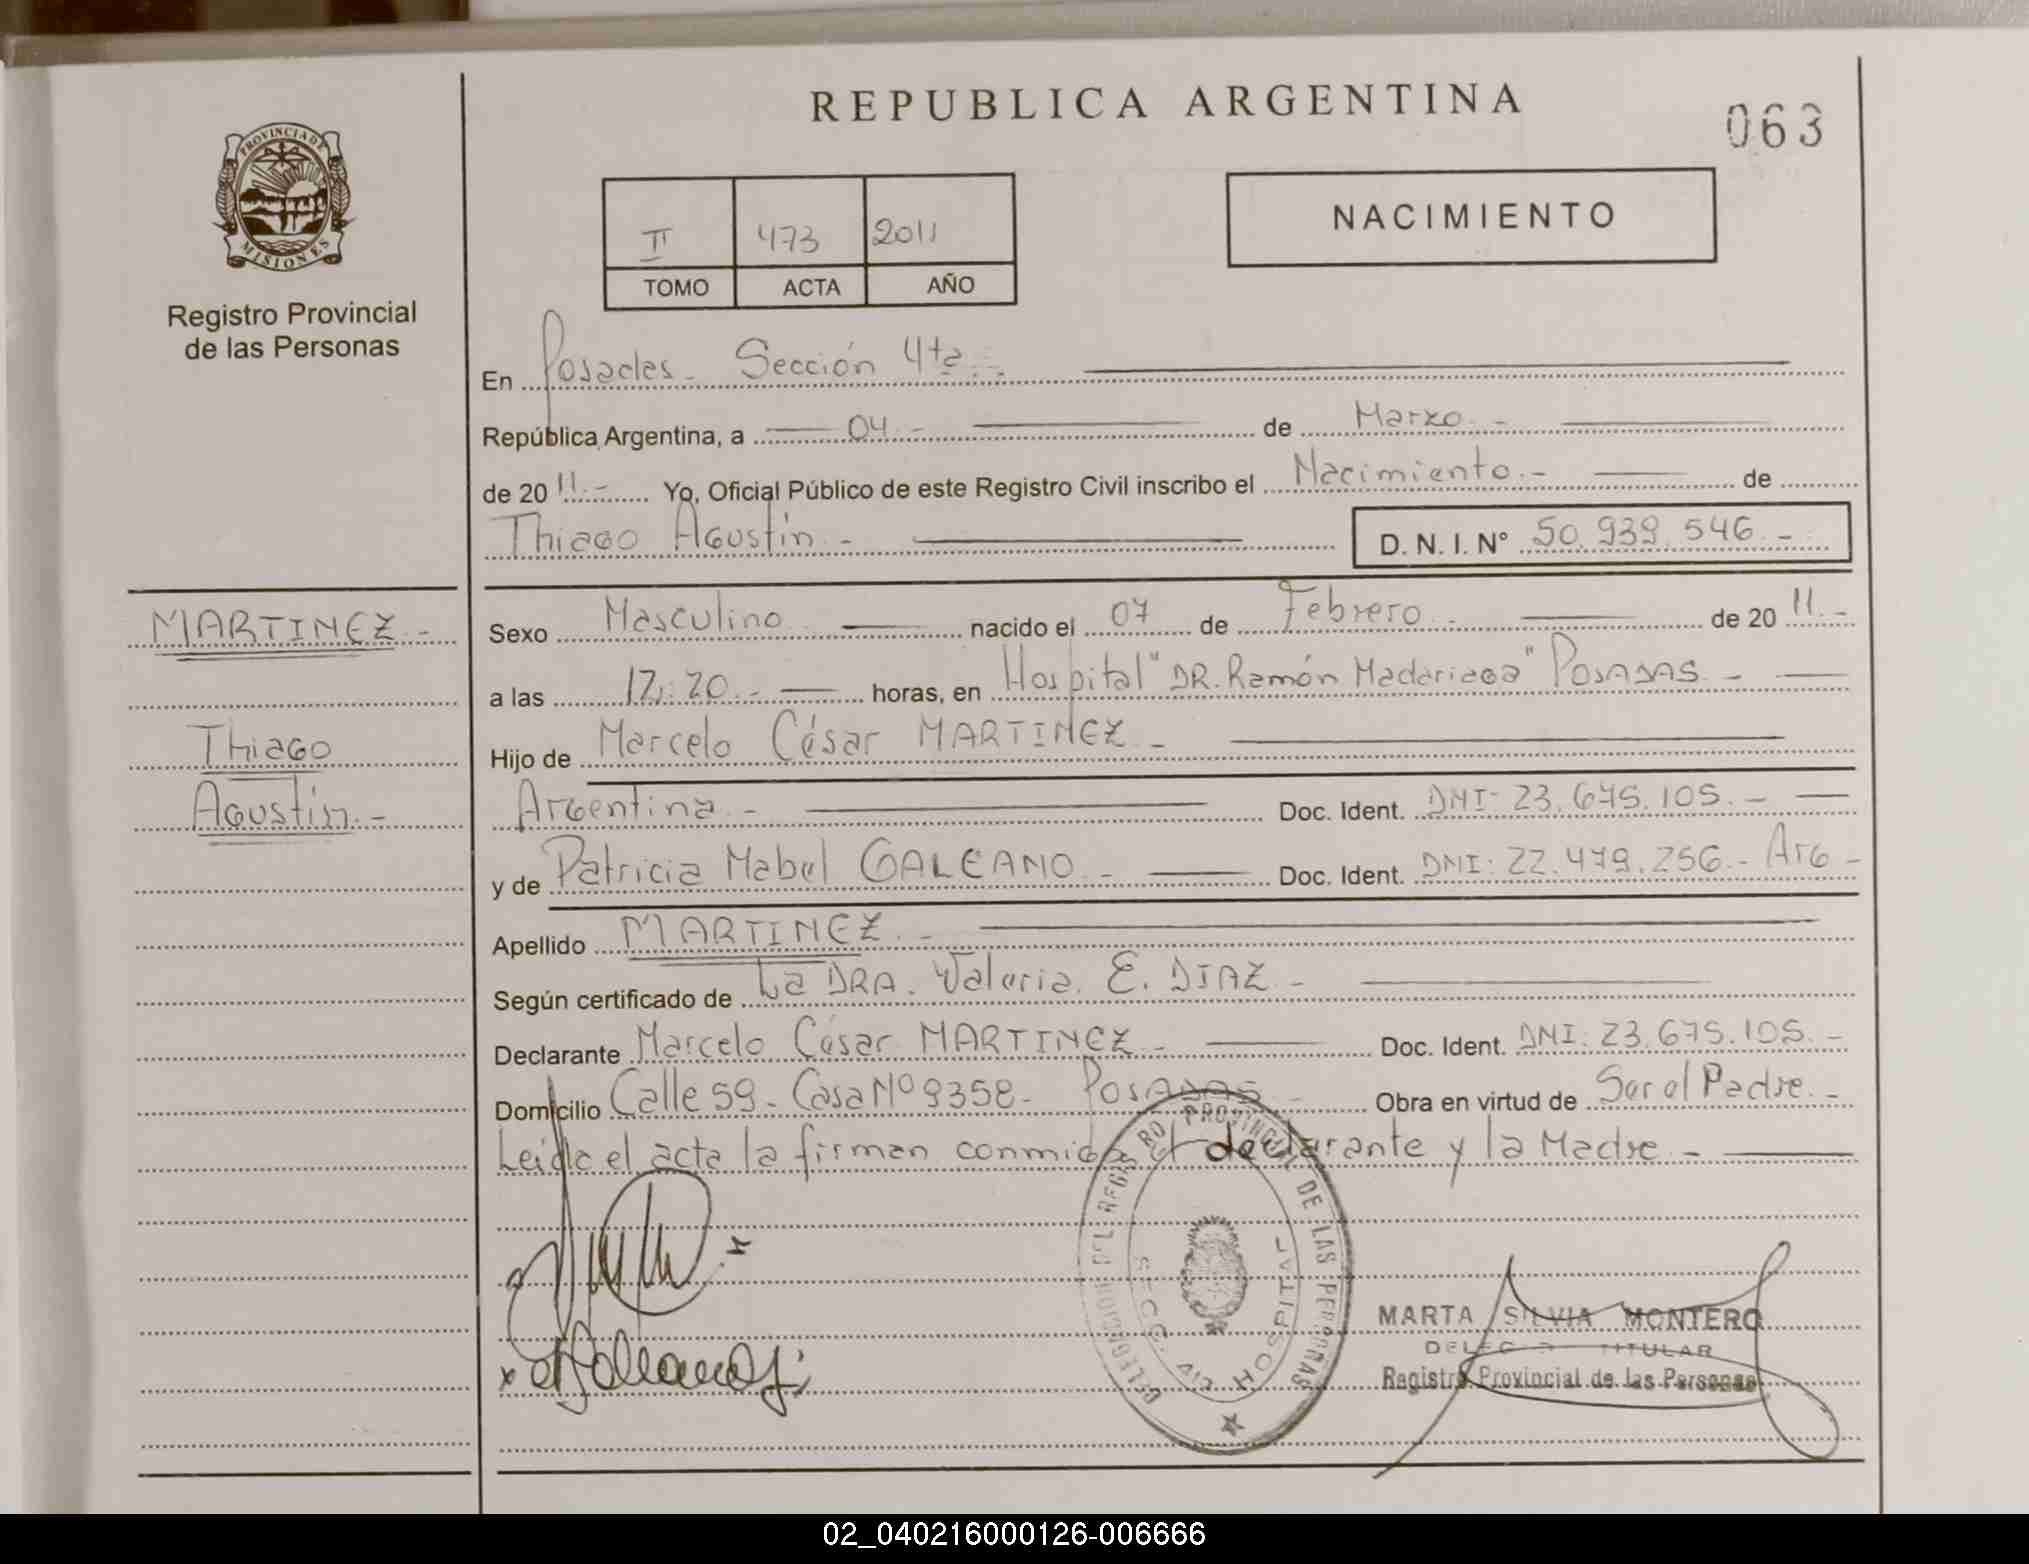 REPUBLICA ARGENTINA
063
PROVINCIA DE
MISIONES
Registro Provincial
de las Personas
II 473 2011
TOMO ACTA AÑO
NACIMIENTO
En Posadas - Sección 4ta. -
República Argentina, a 04 - de Marzo. -
de 20 11. - Yo, Oficial Público de este Registro Civil inscribo el Nacimiento. - de
Thiago Agustín - D. N. I. N° 50.939.546. -
MARTINEZ. -
Thiago
Agustín. -
Sexo Masculino nacido el 07 de Febrero - de 20 11. -
a las 12:20. - horas, en Hospital "DR. Ramón Madariaga" POSADAS. -
Hijo de Marcelo César MARTINEZ -
Argentina. - Doc. Ident. DNI: 23.675.105. -
y de Patricia Mabel GALEANO - Doc. Ident. DNI: 22.479.256. - Arg -
Apellido MARTINEZ. -
Según certificado de La DRA. Valeria. E. DIAZ -
Declarante Marcelo César MARTINEZ - Doc. Ident. DNI: 23.675.105. -
Domicilio Calle 59 - Casa Nº 9358 - POSADAS - Obra en virtud de Ser el Padre. -
Leída el acta la firman conmigo el declarante y la Madre -
DELEGACION DEL REGISTRO PROVINCIAL DE LAS PERSONAS
SECC. 4TA HOSPITAL
MARTA SILVIA MONTERO
DELEGADA TITULAR
Registro Provincial de las Personas
02_040216000126-006666